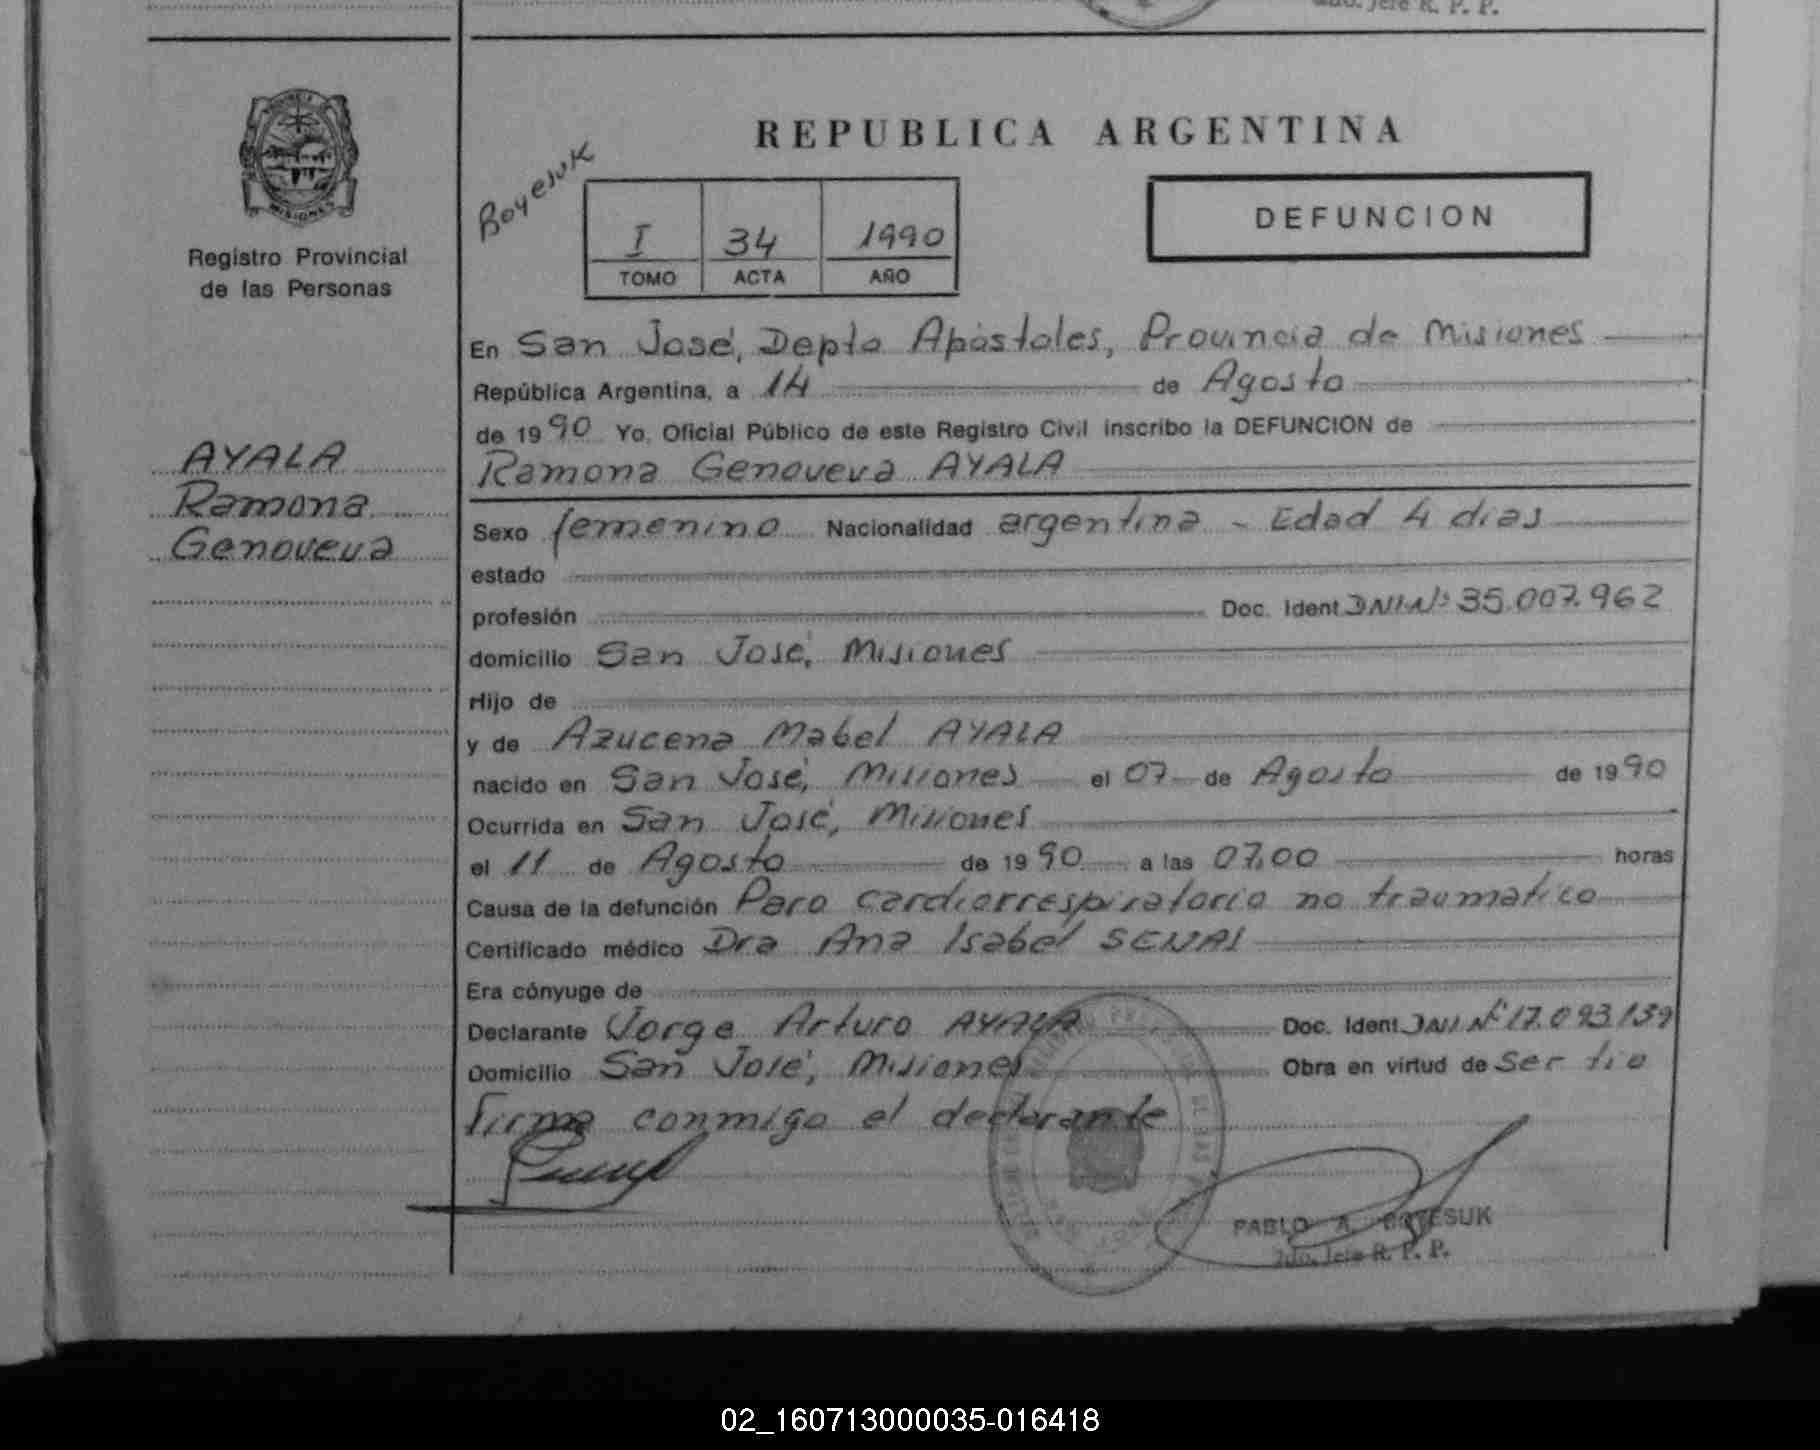 2do. Jefe R. P. P.
PROVINCIA
MISIONES
Registro Provincial
de las Personas
AYALA
Ramona
Genoveva
Boyesuk
REPUBLICA ARGENTINA
I 34 1990
TOMO ACTA AÑO
DEFUNCION
En San José, Depto Apóstoles, Provincia de Misiones
República Argentina, a 14 de Agosto
de 1990 Yo, Oficial Público de este Registro Civil inscribo la DEFUNCION de
Ramona Genoveva AYALA
Sexo femenino Nacionalidad argentina - Edad 4 dias
estado
profesión Doc. Ident DNI Nº 35.007.962
domicilio San José, Misiones
Hijo de
y de Azucena Mabel AYALA
nacido en San José, Misiones el 07 de Agosto de 1990
Ocurrida en San José, Misiones
el 11 de Agosto de 1990 a las 07,00 horas
Causa de la defunción Paro cardiorrespiratorio no traumatico
Certificado médico Dra Ana Isabel SENAS
Era cónyuge de
Declarante Jorge Arturo AYALA Doc. Ident DNI Nº 17.093.139
Domicilio San José, Misiones Obra en virtud de Ser tio
Firma conmigo el declarante
PABLO A. BOYESUK
2do. Jefe R. P. P.
02_160713000035-016418